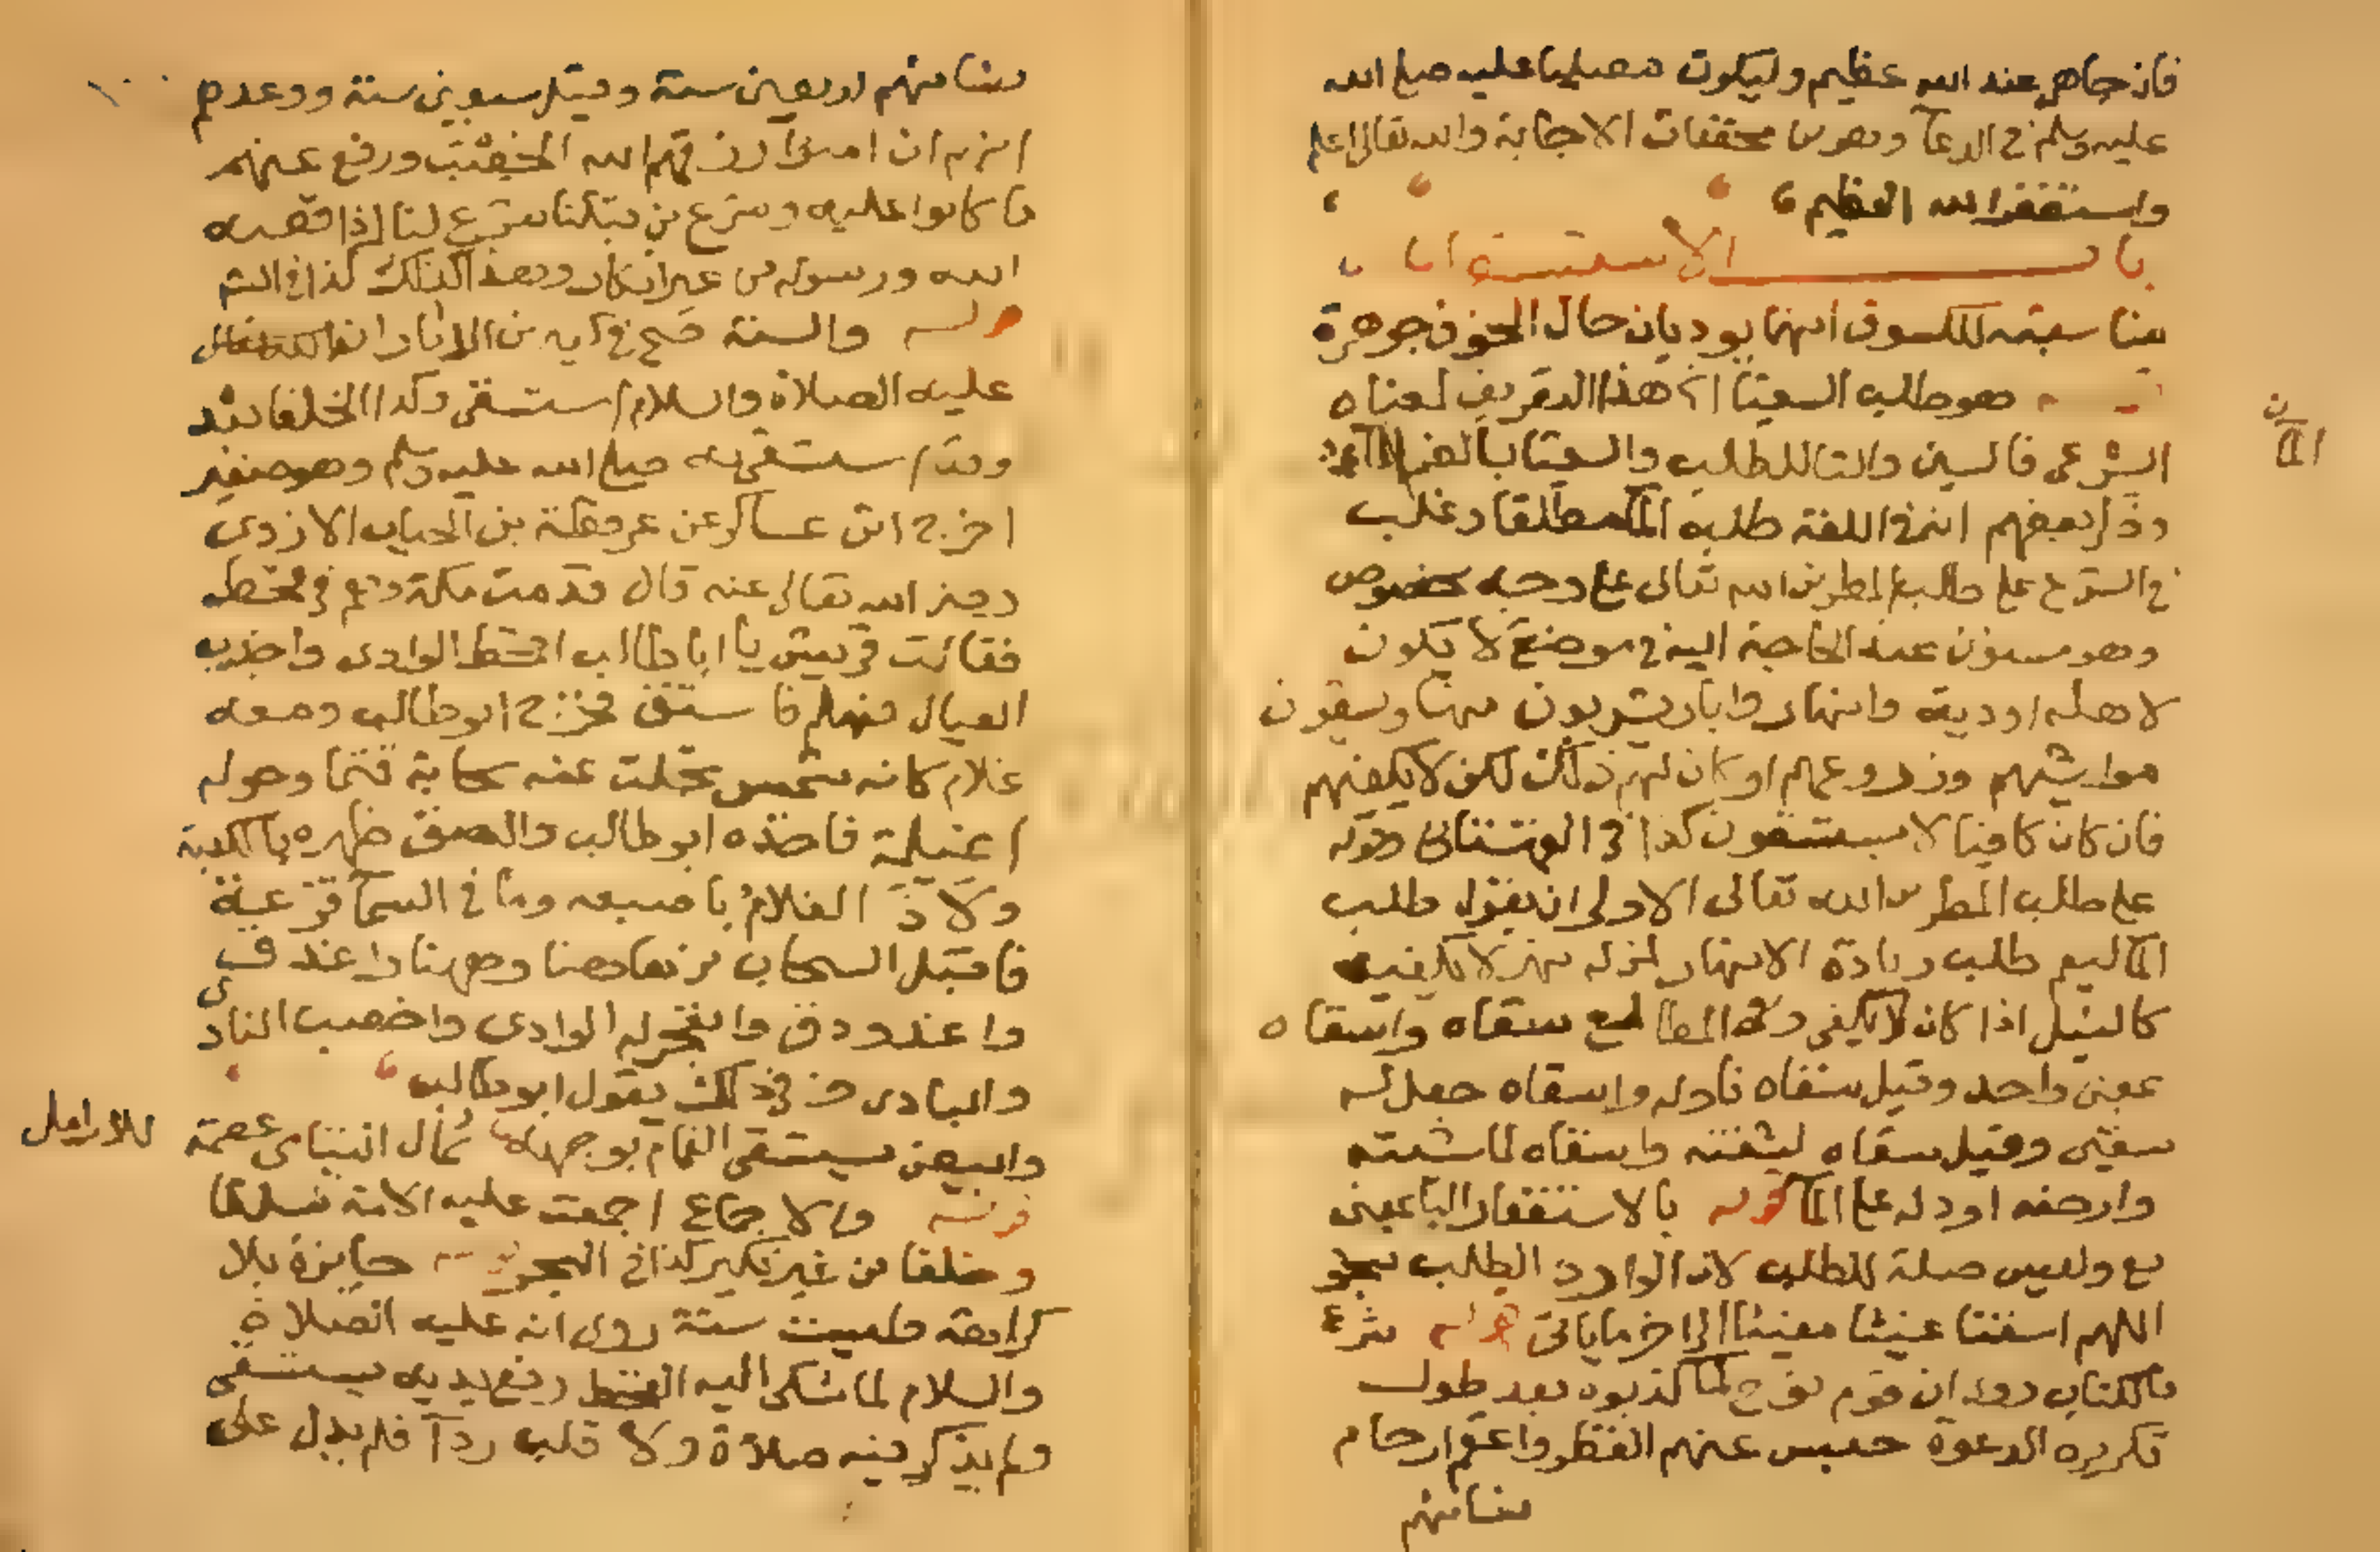 فان جاهى عند الله عظيم وليكون مصليا عليه صلى الله
عليه وسلم فى الدعآ وهو من محققات الاجابة والله تعالى اعلم
واستغفر الله العظيم
باب الاستسقا
مناسبته للكسوف انهما يوديان حال الحزن جوهرة
هو طلب السقيا الخ هذا التعريف لمعناه
الشرعى فالسين والتا للطلب والسقيا بالضم
وذكر بعضهم انه فى اللغة طلب الما مطلقا وغلب
فى الشرع على طلب المطر من الله تعالى على وجه مخصوص
وهو مسنون عند الحاجة اليه فى موضع لا يكون
لاهله اودية وانهار وابار يشربون منها ويسقون
مواشيهم وزروعهم او كان لهم ذلك لكن لا يكفيهم
فان كان كافيا لا يستسقون كذا فى القهستانى قوله
على طلب المطر من الله تعالى الاولى ان يقول طلب
الما ليعم طلب زيادة الانهار لمن له نهر لا يكفيه
كالنيل اذا كان لا يكفى سقاه واسقاه
بمعنى واحد وقيل سقاه ناوله واسقاه جعل له
سقيى وقيل سقاه لشفته واسقاه لماشيته
وارضه او دله على الما قوله بالاستغفار البا بمعنى
مع وليس صلة للطلب لان الوارد الطلب بنحو
اللهم اسقنا غيثا مغيثا الى اخر ما ياتى قوله شرع
بالكتاب روى ان قوم نوح لما كذبوه بعد طول
تكريره الدعوة حبس عنهم القطر واعقم ارحام
نسائهم
نسائهم اربعين سنة وقيل سبعين سنة ووعدهم
انهم ان امنوا رزقهم الله الخصب ورفع عنهم
ما كانوا عليه وشرع من قبلنا شرع لنا اذا قصه
الله ورسوله من غير انكار وهذا كذلك كذا فى الشرح
قوله والسنة صح فى من الاثار انه
عليه الصلاة والسلام استسقى وكذا الخلفا بعده
وقد استسقى به صلى الله عليه وسلم وهو صغير
اخرج ابن عساكر عن عرفطة بن الحباب الازدى
رضى الله تعالى عنه قال قدمت مكة وهم فى قحط
فقالت قريش يا ابا طالب اقحط الوادى واجدب
العيال فهلم فاستسق فخرج ابو طالب ومعه
غلام كانه شمس تجلت عنه سحابة قتما وحوله
اغيلمة فاخذه ابو طالب والصق ظهره بالكعبة
ولاذ الغلام باصبعه وما فى السمآ قزعة
فاقبل السحاب من هاهنا وههنا واغدق
واغدودق وانفجر له الوادى واخصب الناد
والبادى وفى ذلك يقول ابو طالب
وابيض يستسقى الغمام بوجهه ثمال اليتامى عصمة للارامل
قوله والاجماع اجمعت عليه الامة سلفا
وخلفا من غير نكير كذا فى البحر قوله جايزة بلا
كراهة وليست سنة روى انه عليه الصلاة
والسلام لما شكى اليه القحط رفع يديه يستسقى
ولم يذكر فيه صلاة ولا قلب ردآ فلم يدل على